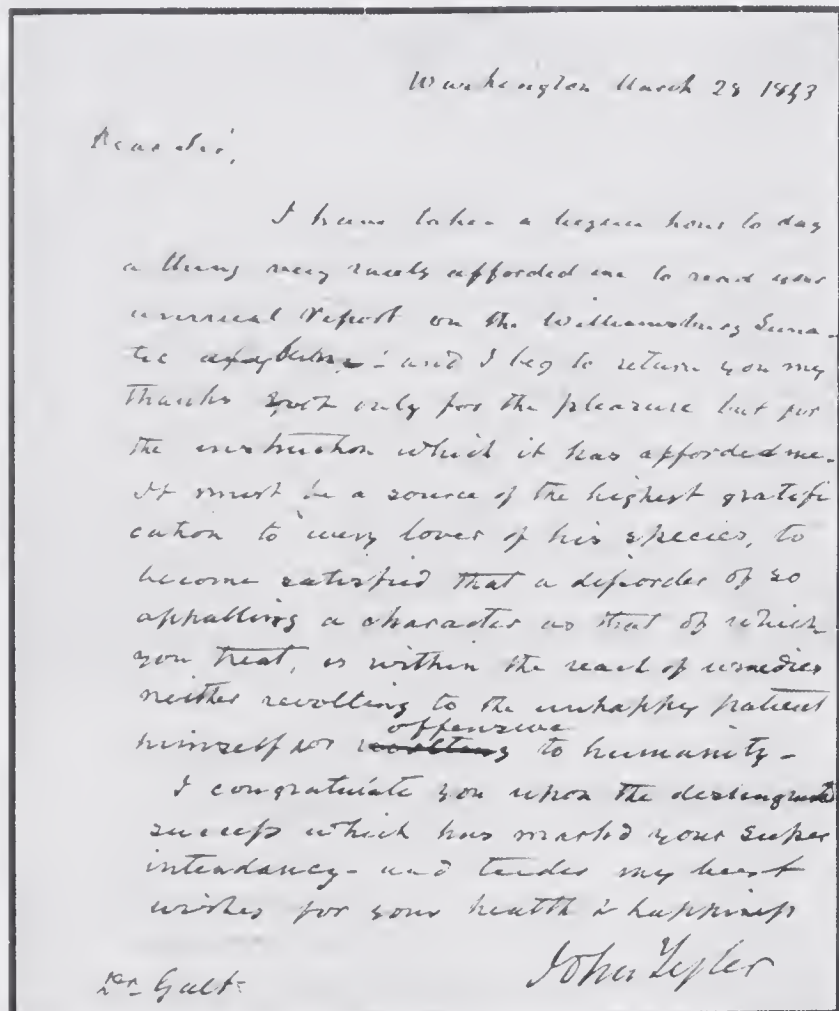 Washington March 28 1843
Dear Sir,
I have taken a leisure hour to day
a thing very rarely afforded me to read your
annual report on the Williamsburg Luna-
tic asylum: and I beg to return you my
thanks not only for the pleasure but for
the instruction which it has afforded me.
It must be a source of the highest gratifi
cation to every lover of his species, to
become satisfied that a disorder of so
appalling a character as that of which
you treat, is within the reach of remedies
neither revolting to the unhappy patient
himself nor revolting offensive to humanity-
I congratulate you upon the distinguished
success which has marked your super
intendancy- and tender my best
wishes for your health & happiness
John Tyler
Dr. Galt